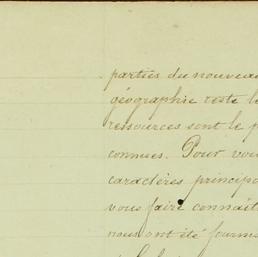 parties du nouveau
géographie reste
ressources sont le
connues. Pour vou
caractères princip
vous faire connaît
nous ont été fourn